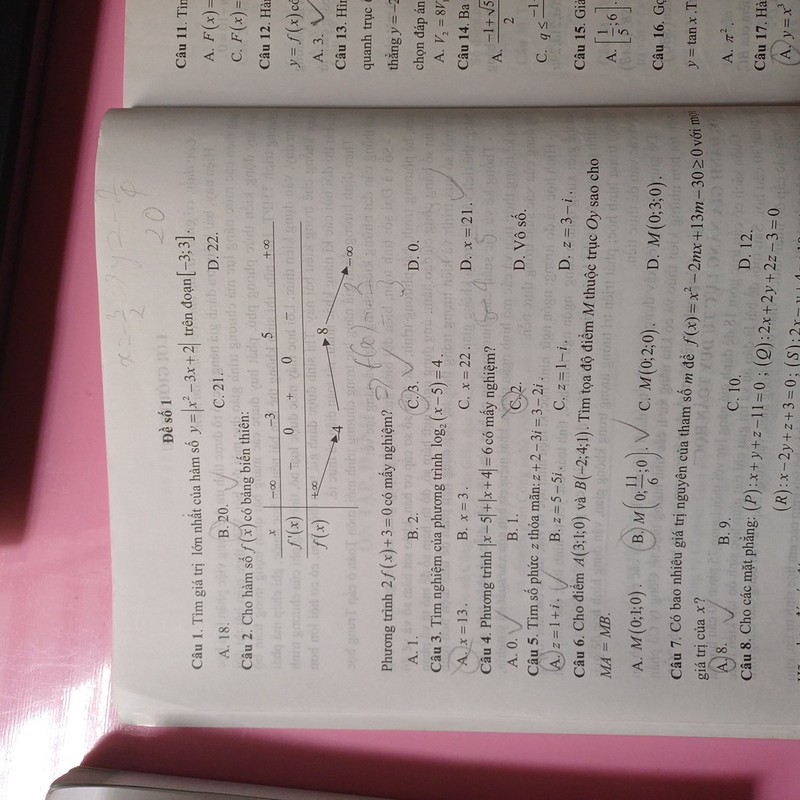 Đề số 1
Câu 1. Tìm giá trị lớn nhất của hàm số y = |x² − 3x + 2| trên đoạn [−3;3].
A. 18. B. 20. C. 21. D. 22.
Câu 2. Cho hàm số f(x) có bảng biến thiên:
x −∞ −3 5 +∞
f'(x) − 0 + 0 −
f(x) +∞ −4 8 −∞
Phương trình 2f(x)+3=0 có mấy nghiệm?
A. 1. B. 2. C. 3. D. 0.
Câu 3. Tìm nghiệm của phương trình log₂(x−5)=4.
A. x=13. B. x=3. C. x=22. D. x=21.
Câu 4. Phương trình |x−5|+|x+4|=6 có mấy nghiệm?
A. 0. B. 1. C. 2. D. Vô số.
Câu 5. Tìm số phức z thỏa mãn: z+2−3i=3−2i.
A. z=1+i. B. z=5−5i. C. z=1−i. D. z=3−i.
Câu 6. Cho điểm A(3;1;0) và B(−2;4;1). Tìm tọa độ điểm M thuộc trục Oy sao cho
MA = MB.
A. M(0;1;0). B. M(0;11/6;0). C. M(0;2;0). D. M(0;3;0).
Câu 7. Có bao nhiêu giá trị nguyên của tham số m để f(x)=x²−2mx+13m−30≥0 với mọi
giá trị của x?
A. 8. B. 9. C. 10. D. 12.
Câu 8. Cho các mặt phẳng: (P):x+y+z−11=0; (Q):2x+2y+2z−3=0
(R):x−2y+z+3=0; (S):2x
Câu 11. Tìm
A. F(x)=
C. F(x)=
Câu 12. Hà
y=f(x) có
A. 3.
Câu 13. Hì
quanh trục
thẳng y=−2
chọn đáp án
A. V₂=8V₁
Câu 14. Ba
A. −1+√5/2
C. q≤
Câu 15. Giả
A. [1/5;6].
Câu 16. Gọ
y=tan x.T
A. π².
Câu 17. Hà
A. y=x³